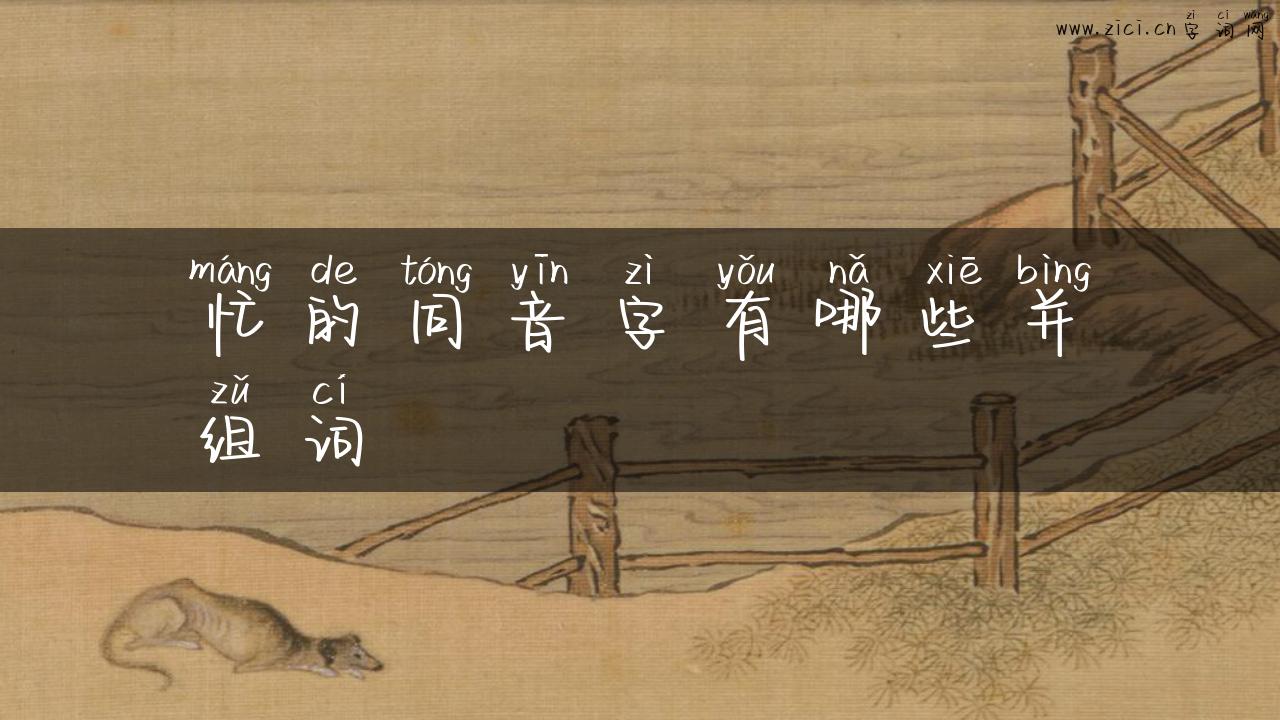 zì cí wǎng
www.zici.cn字词网
máng de tóng yīn zì yǒu nǎ xiē bìng
忙的同音字有哪些并
zǔ cí
组词